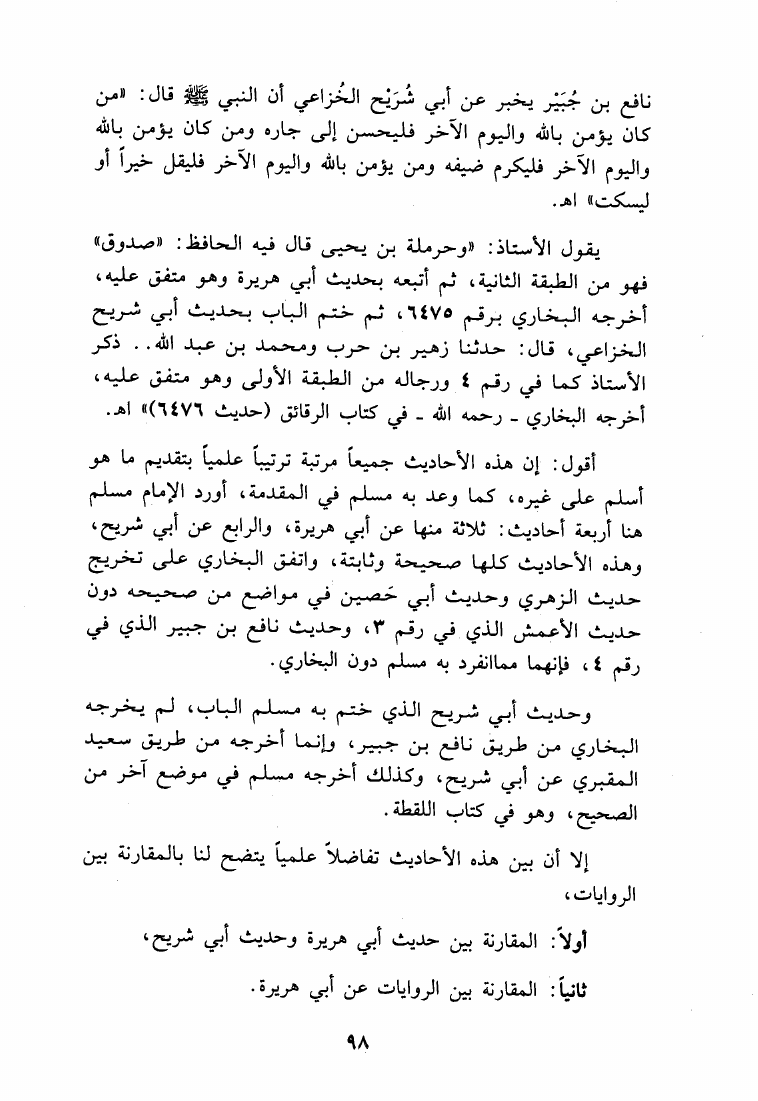 نافع بن جُبَيْر يخبر عن أبي شُرَيْح الخُزاعي أن النبي ﷺ قال: «من
كان يؤمن بالله واليوم الآخر فليحسن إلى جاره ومن كان يؤمن بالله
واليوم الآخر فليكرم ضيفه ومن يؤمن بالله واليوم الآخر فليقل خيراً أو
ليسكت» اهـ.
يقول الأستاذ: «وحرملة بن يحيى قال فيه الحافظ: «صدوق»
فهو من الطبقة الثانية، ثم أتبعه بحديث أبي هريرة وهو متفق عليه،
أخرجه البخاري برقم ٦٤٧٥، ثم ختم الباب بحديث أبي شريح
الخزاعي، قال: حدثنا زهير بن حرب ومحمد بن عبد الله.. ذكر
الأستاذ كما في رقم ٤ ورجاله من الطبقة الأولى وهو متفق عليه،
أخرجه البخاري - رحمه الله - في كتاب الرقائق (حديث ٦٤٧٦)» اهـ.
أقول: إن هذه الأحاديث جميعاً مرتبة ترتيباً علمياً بتقديم ما هو
أسلم على غيره، كما وعد به مسلم في المقدمة، أورد الإمام مسلم
هنا أربعة أحاديث: ثلاثة منها عن أبي هريرة، والرابع عن أبي شريح،
وهذه الأحاديث كلها صحيحة وثابتة، واتفق البخاري على تخريج
حديث الزهري وحديث أبي حَصين في مواضع من صحيحه دون
حديث الأعمش الذي في رقم ٣، وحديث نافع بن جبير الذي في
رقم ٤، فإنهما مماانفرد به مسلم دون البخاري.
وحديث أبي شريح الذي ختم به مسلم الباب، لم يخرجه
البخاري من طريق نافع بن جبير، وإنما أخرجه من طريق سعيد
المقبري عن أبي شريح، وكذلك أخرجه مسلم في موضع آخر من
الصحيح، وهو في كتاب اللقطة.
إلا أن بين هذه الأحاديث تفاضلاً علمياً يتضح لنا بالمقارنة بين
الروايات،
أولاً: المقارنة بين حديث أبي هريرة وحديث أبي شريح،
ثانياً: المقارنة بين الروايات عن أبي هريرة.
٩٨